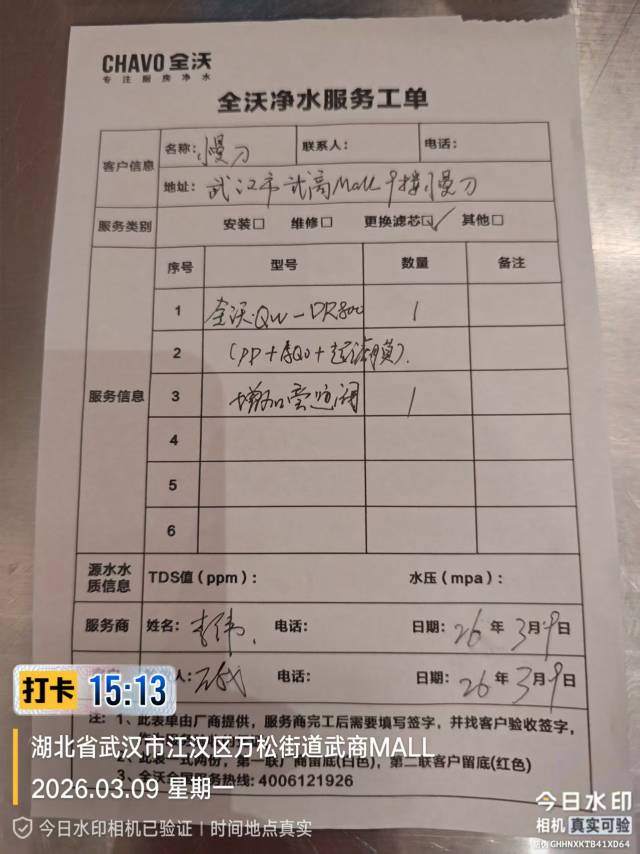 CHAVO 全沃
专注厨房净水
全沃净水服务工单
客户信息
名称: 慢刀
联系人:
电话:
地址: 武汉市武商Mall 9楼慢刀
服务类别
安装□ 维修□ 更换滤芯☑ 其他□
服务信息
序号 型号 数量 备注
1 全沃QW-DR800 1
2
3 增加旁通阀 1
4
5
6
源水水质信息
TDS值(ppm): 水压(mpa):
服务商 姓名: 李伟 电话: 日期: 26年3月9日
人: 电话: 日期: 26年3月9日
注: 1、此表单由厂商提供,服务商完工后需要填写签字,并找客户验收签字,
2、此表一式两份,第一联厂商留底(白色),第二联客户留底(红色)
3、全沃全国服务热线: 4006121926
打卡 15:13
湖北省武汉市江汉区万松街道武商MALL
2026.03.09 星期一
今日水印相机已验证 | 时间地点真实
今日水印
相机 真实可验
防伪 GHHNXKTB41XD64